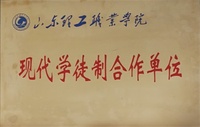 山东理工职业学院
现代学徒制合作单位